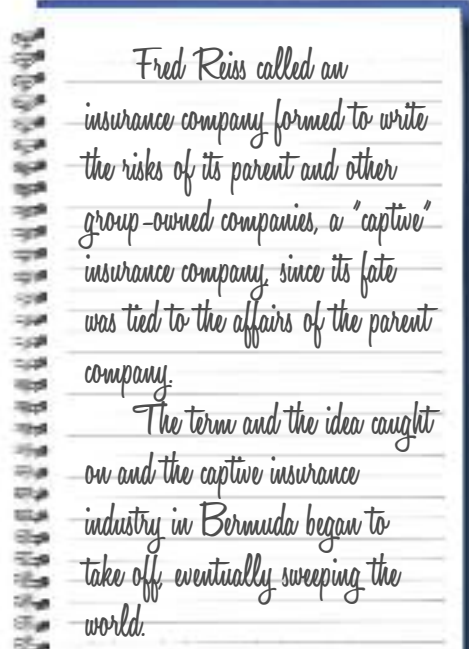 Fred Reiss called an
insurance company formed to write
the risks of its parent and other
group-owned companies, a "captive"
insurance company, since its fate
was tied to the affairs of the parent
company.
The term and the idea caught
on and the captive insurance
industry in Bermuda began to
take off, eventually sweeping the
world.